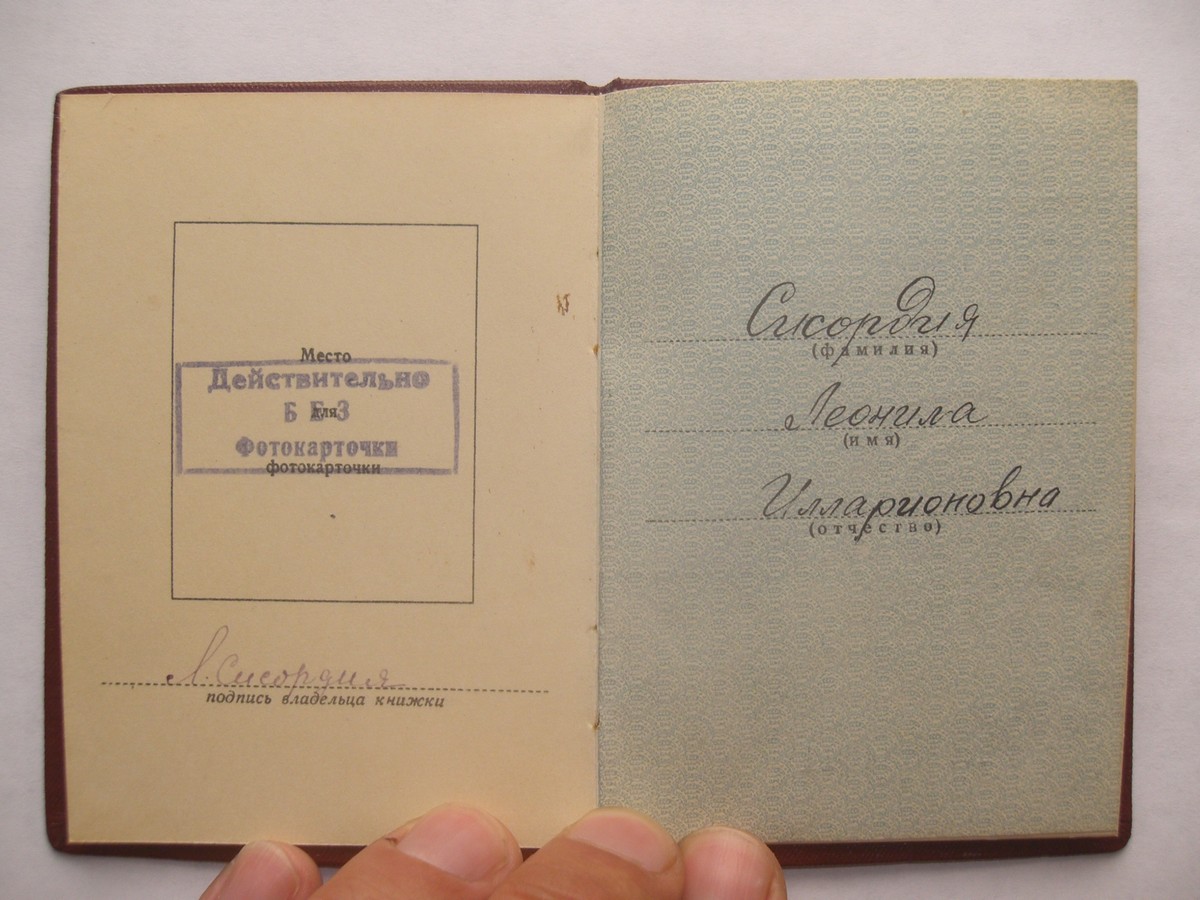 Место
Действительно
БЕЗ
для
Фотокарточки
фотокарточки
Л. Сикордия
подпись владельца книжки
Сикордия
(фамилия)
Леонила
(имя)
Илларионовна
(отчество)